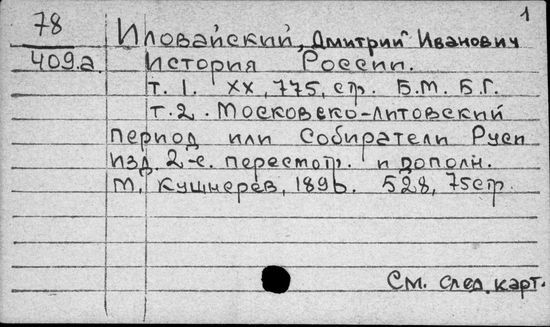 1
78
Иловайский, Дмитрий Иванович
409.а.
История России.
т. 1. XX, 775, стр. Б.М. Б.Г.
т. 2. Московско-литовский
период или собиратели Руси
изд. 2-е. пересмотр. и дополн.
М, Кушнерев, 1896. 528, 75 стр.
См. след. карт.